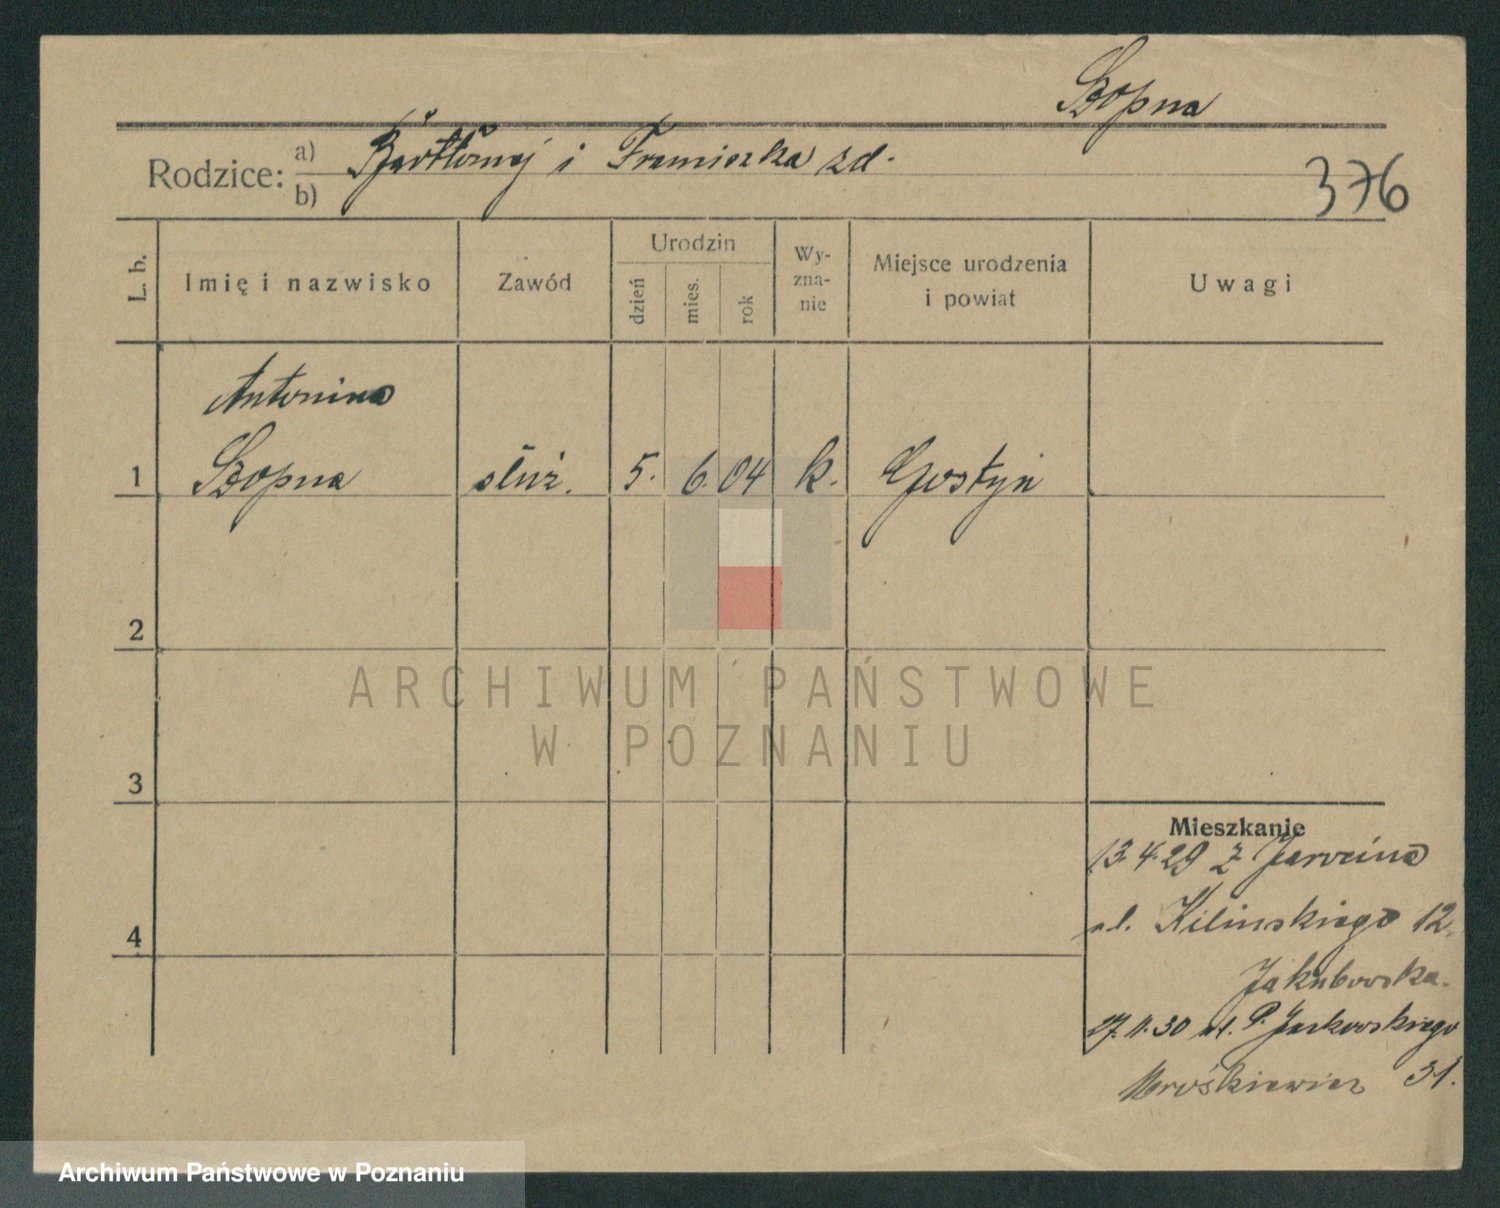 Szopna
Rodzice: a) Bartłomej i Franciszka zd.
b)
376
L. b.
Imię i nazwisko
Zawód
Urodzin
dzień
mies.
rok
Wy-
zna-
nie
Miejsce urodzenia
i powiat
Uwagi
Antonina
1 Szopna służ. 5. 6. 04 k. Gostyń
2
ARCHIWUM PAŃSTWOWE
W POZNANIU
3
Mieszkanie
13.4.29 z Jarocina
ul. Kilinskiego 12.
4
Jakubowska.
27.11.30 ul. P.
31.
Archiwum Państwowe w Poznaniu